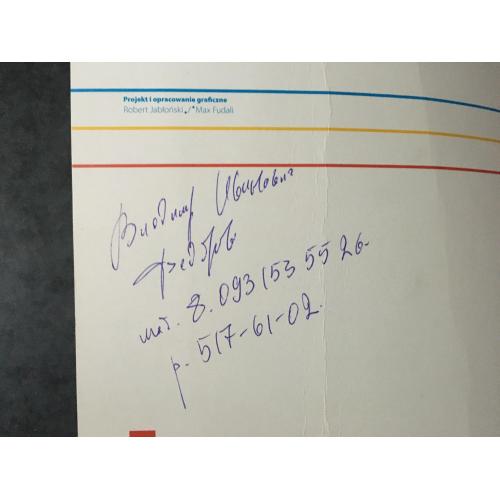 Projekt i opracowanie graficzne
Robert Jabłoński / Max Fudali
Володимир Іванович
Федоров
мат. 8.093 153 55 26.
р. 517-61-02.